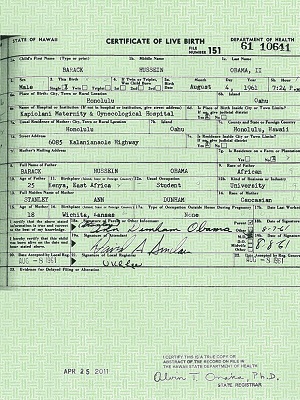 STATE OF HAWAII CERTIFICATE OF LIVE BIRTH DEPARTMENT OF HEALTH
FILE NUMBER 151 61 10641
1a. Child's First Name (Type or print) 1b. Middle Name 1c. Last Name
BARACK HUSSEIN OBAMA, II
2. Sex 3. This Birth 4. If Twin or Triplet, Was Child Born 5a. Birth Date Month Day Year 5b. Hour
Male Single Twin Triplet 1st 2nd 3rd August 4, 1961 7:24 P.
6a. Place of Birth: City, Town or Rural Location 6b. Island
Honolulu Oahu
6c. Name of Hospital or Institution (If not in hospital or institution, give street address) 6d. Is Place of Birth Inside City or Town Limits?
If no, give judicial district
Kapiolani Maternity & Gynecological Hospital Yes No
7a. Usual Residence of Mother: City, Town or Rural Location 7b. Island 7c. County and State or Foreign Country
Honolulu Oahu Honolulu, Hawaii
7d. Street Address 7e. Is Residence Inside City or Town Limits?
If no, give judicial district
6085 Kalanianaole Highway Yes No
7f. Mother's Mailing Address 7g. Is Residence on a Farm or Plantation?
Yes No
8. Full Name of Father 9. Race of Father
BARACK HUSSEIN OBAMA African
10. Age of Father 11. Birthplace (Island, State or Foreign Country) 12a. Usual Occupation 12b. Kind of Business or Industry
25 Kenya, East Africa Student University
13. Full Maiden Name of Mother 14. Race of Mother
STANLEY ANN DUNHAM Caucasian
15. Age of Mother 16. Birthplace (Island, State or Foreign Country) 17a. Type of Occupation Outside Home During Pregnancy 17b. Date Last Worked
18 Wichita, Kansas None
I certify that the above stated information is true and correct to the best of my knowledge. 18a. Signature of Parent or Other Informant Parent Other 18b. Date of Signature
Ann Dunham Obama 8-7-61
I hereby certify that this child was born alive on the date and hour stated above. 19a. Signature of Attendant M.D. D.O. Midwife Other 19b. Date of Signature
David A Sinclair 8-8-61
20. Date Accepted by Local Reg. 21. Signature of Local Registrar 22. Date Accepted by Reg. General
AUG -8 1961 AUG -8 1961
23. Evidence for Delayed Filing or Alteration
APR 25 2011
I CERTIFY THIS IS A TRUE COPY OR
ABSTRACT OF THE RECORD ON FILE IN
THE HAWAII STATE DEPARTMENT OF HEALTH
Alvin T. Onaka, Ph.D.
STATE REGISTRAR